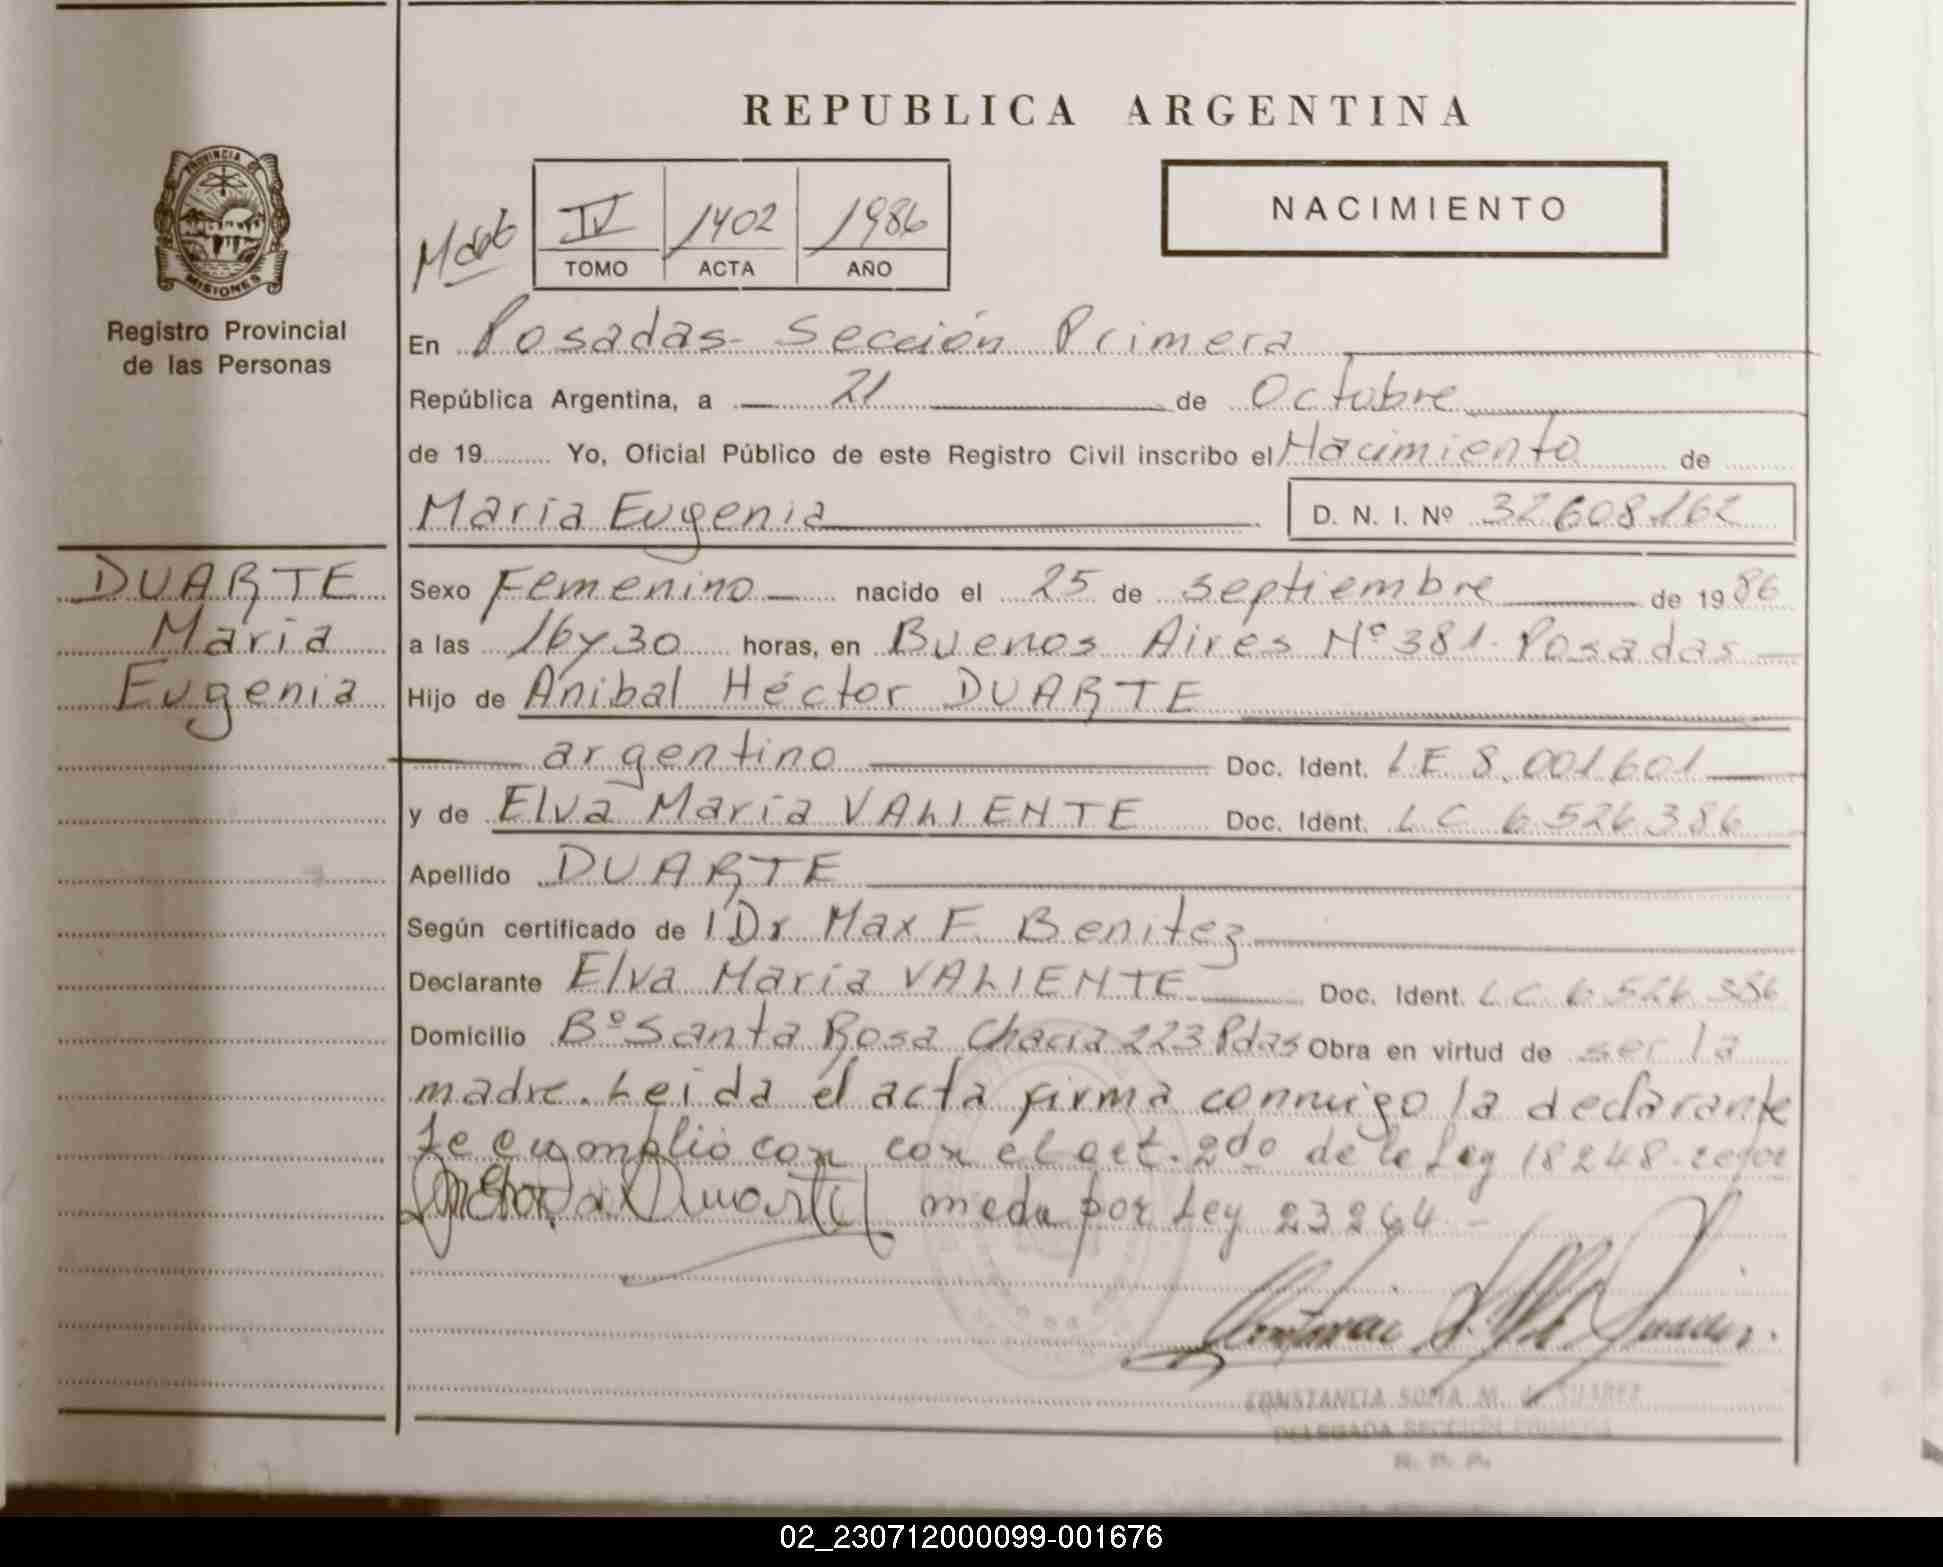 REPUBLICA ARGENTINA
PROVINCIA
MISIONES
Registro Provincial
de las Personas
IV 1402 1986
TOMO ACTA AÑO
NACIMIENTO
En Posadas - Sección Primera
República Argentina, a 21 de Octubre
de 19 Yo, Oficial Público de este Registro Civil inscribo el Nacimiento de
Maria Eugenia D. N. I. Nº 32608162
DUARTE
Maria
Eugenia
Sexo Femenino nacido el 25 de septiembre de 1986
a las 16 y 30 horas, en Buenos Aires Nº 381 - Posadas
Hijo de Anibal Héctor DUARTE
argentino Doc. Ident. LE 8.001601
y de Elva Maria VALIENTE Doc. Ident. LC 6526386
Apellido DUARTE
Según certificado de l Dr Max F. Benitez
Declarante Elva Maria VALIENTE Doc. Ident. LC 6526386
Domicilio Bº Santa Rosa Chacra 223 Pdas Obra en virtud de ser la
madre. Leida el acta firma conmigo la declarante
Se cumplió con con el art. 2do de la Ley 18248. refor
mada por Ley 23264 -
CONSTANCIA SOFIA M. de SUAREZ
DELEGADA SECCION PRIMERA
R. P. P.
02_230712000099-001676